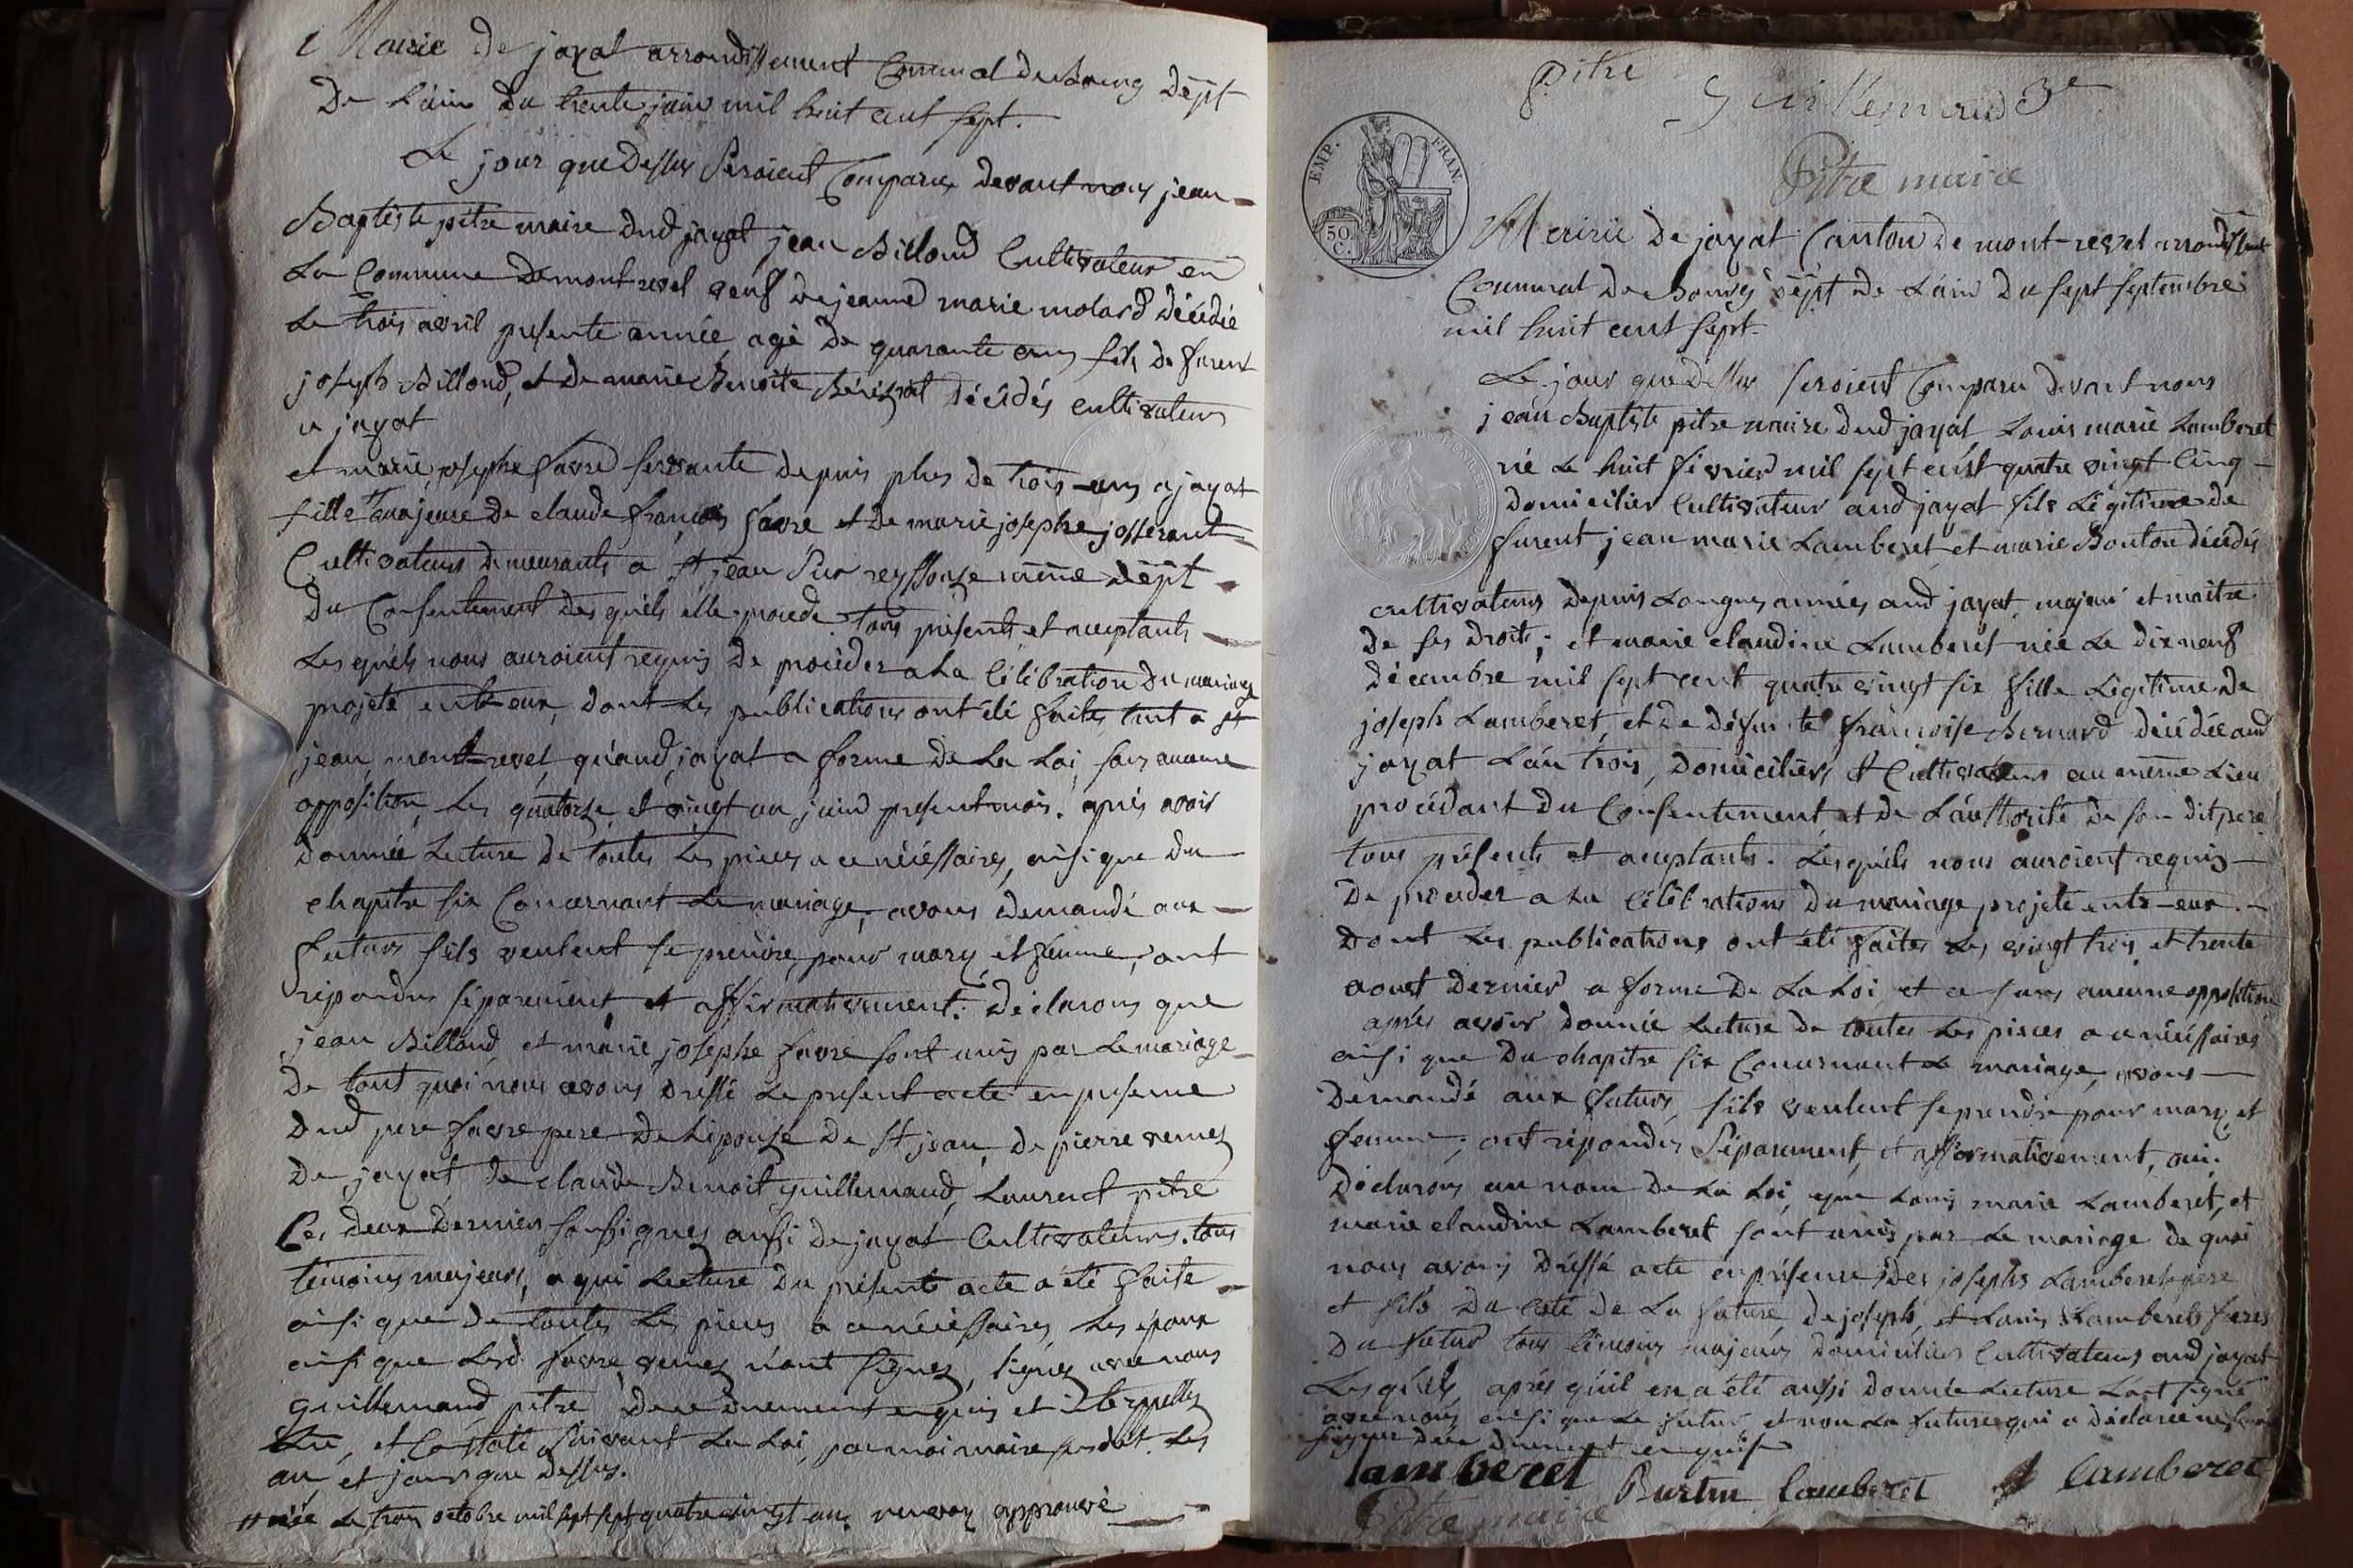 Mairie de jayat arrondissement Communal de Bourg dépt
De L'ain du trente juin mil huit cent sept.
Le jour que Dessus Seroient Comparus devant nous jean
Baptiste pitre maire dud jayat jean Billoud Cultivateur en
La Commune de mont revel veuf de jeanne marie molard décédée
Le trois avril presente année, agé de quarante ans fils de furent
joseph Billoud, et de marie Benoite décédés cultivateurs
a jayat
et marie josephe favre servante depuis plus de trois ans a jayat
fille majeure de claude françois favre et de marie josephe josserant
Cultivateurs demeurants a st jean Sur reyssouze même dépt
du Consentement des quels elle procede. tous présents et aceptants
Les quels nous auroient requis de proceder a La Célébration du mariage
projeté entr'eux, dont Les publications ont été faites tant a st
jean, mont revel, qu'aud jayat a forme de La Loi, sans aucune
opposition, Les quatorze et vingt un juin present mois. après avoir
donnée Lecture de toutes Les pieces a ce nécéssaires, ainsi que du
chapitre six Concernant Le mariage, avons demandé aux
futurs s'ils veulent se prendre pour mary et femme, ont
répondus séparément et affirmativement. déclarons que
jean Billoud et marie josephe favre sont unis par Le mariage
De tout quoi nous avons dressé Le present acte en presence
dud favre pere de L'épouse de St jean, de pierre vernes
De jayat, de claude Benoit guillemaud, Laurent pitre
Ces deux derniers soussignés aussi de jayat Cultivateurs. tous
témoins majeurs, a qui Lecture du présent acte a été faite
ainsi que de toutes Les pieces a ce nécéssaires, Les époux
ainsi que Lesd favre, vernes n'ont signés, signés avec nous
guillemaud, pitre de ce duement enquis et
et Costaté Suivant La Loi, par moi maire susdit. Les
an, et jour que dessus.
née Le trois octobre mil sept sept quatre vingt un. renvoy approuvé
pitre
guillemaud
Pitre maire
EMP. FRAN.
50 C.
Mairie de jayat Canton de mont-revel arrondissement
Communal de Bourg dépt de L'ain du sept septembre
mil huit cent sept.
Le jour que Dessus seroient Comparu devant nous
jean Baptiste pitre maire dud jayat, Louis marie Lamberet
né Le huit février mil sept cent quatre vingt Cinq
domicilier Cultivateur aud jayat fils Légitime de
furent jean marie Lamberet, et marie Bouton décédés
cultivateurs depuis Longues années aud jayat, majeur et maître
de ses droits; et marie claudine Lamberet née Le dix neuf
décembre mil sept cent quatre vingt six fille Légitime de
joseph Lamberet, et de défunte françoise Bernard décédée aud
jayat L'an trois, domiciliers et Cultivateurs au même Lieu
procédant du Consentement et de L'authorité de son dit pere
tous présents et aceptants. Les quels nous auroient requis
De proceder a La Célébrations du mariage projeté entr-eux.
dont Les publications ont été faites Les vingt trois et trente
aoust dernier a forme de La Loi, et ce sans aucune opposition
après avoir donnée Lecture de toutes Les pieces a ce nécéssaires
ainsi que du chapitre six Concernant Le mariage, avons
demandé aux futurs, s'ils veulent se prendre pour mary et
femme; ont répondus Séparement, et affirmativement, oui.
déclarons au nom de La Loi, que Louis marie Lamberet, et
marie claudine Lamberet sont unis par Le mariage de quoi
nous avons dréssé acte en présence des josephs Lamberet pere
et fils du Coté de La future, de joseph, et Louis Lamberets freres
Du futur tous témoins majeurs domiciliers Cultivateurs aud jayat
Lesquels, après qu'il en a été aussi donnée Lecture L'ont signé
avec nous ainsi que Le futur et non La future qui a déclarée ne savoir
signer de ce duement enquise
lamberet Burtin lamberet lamberet
Pitre maire